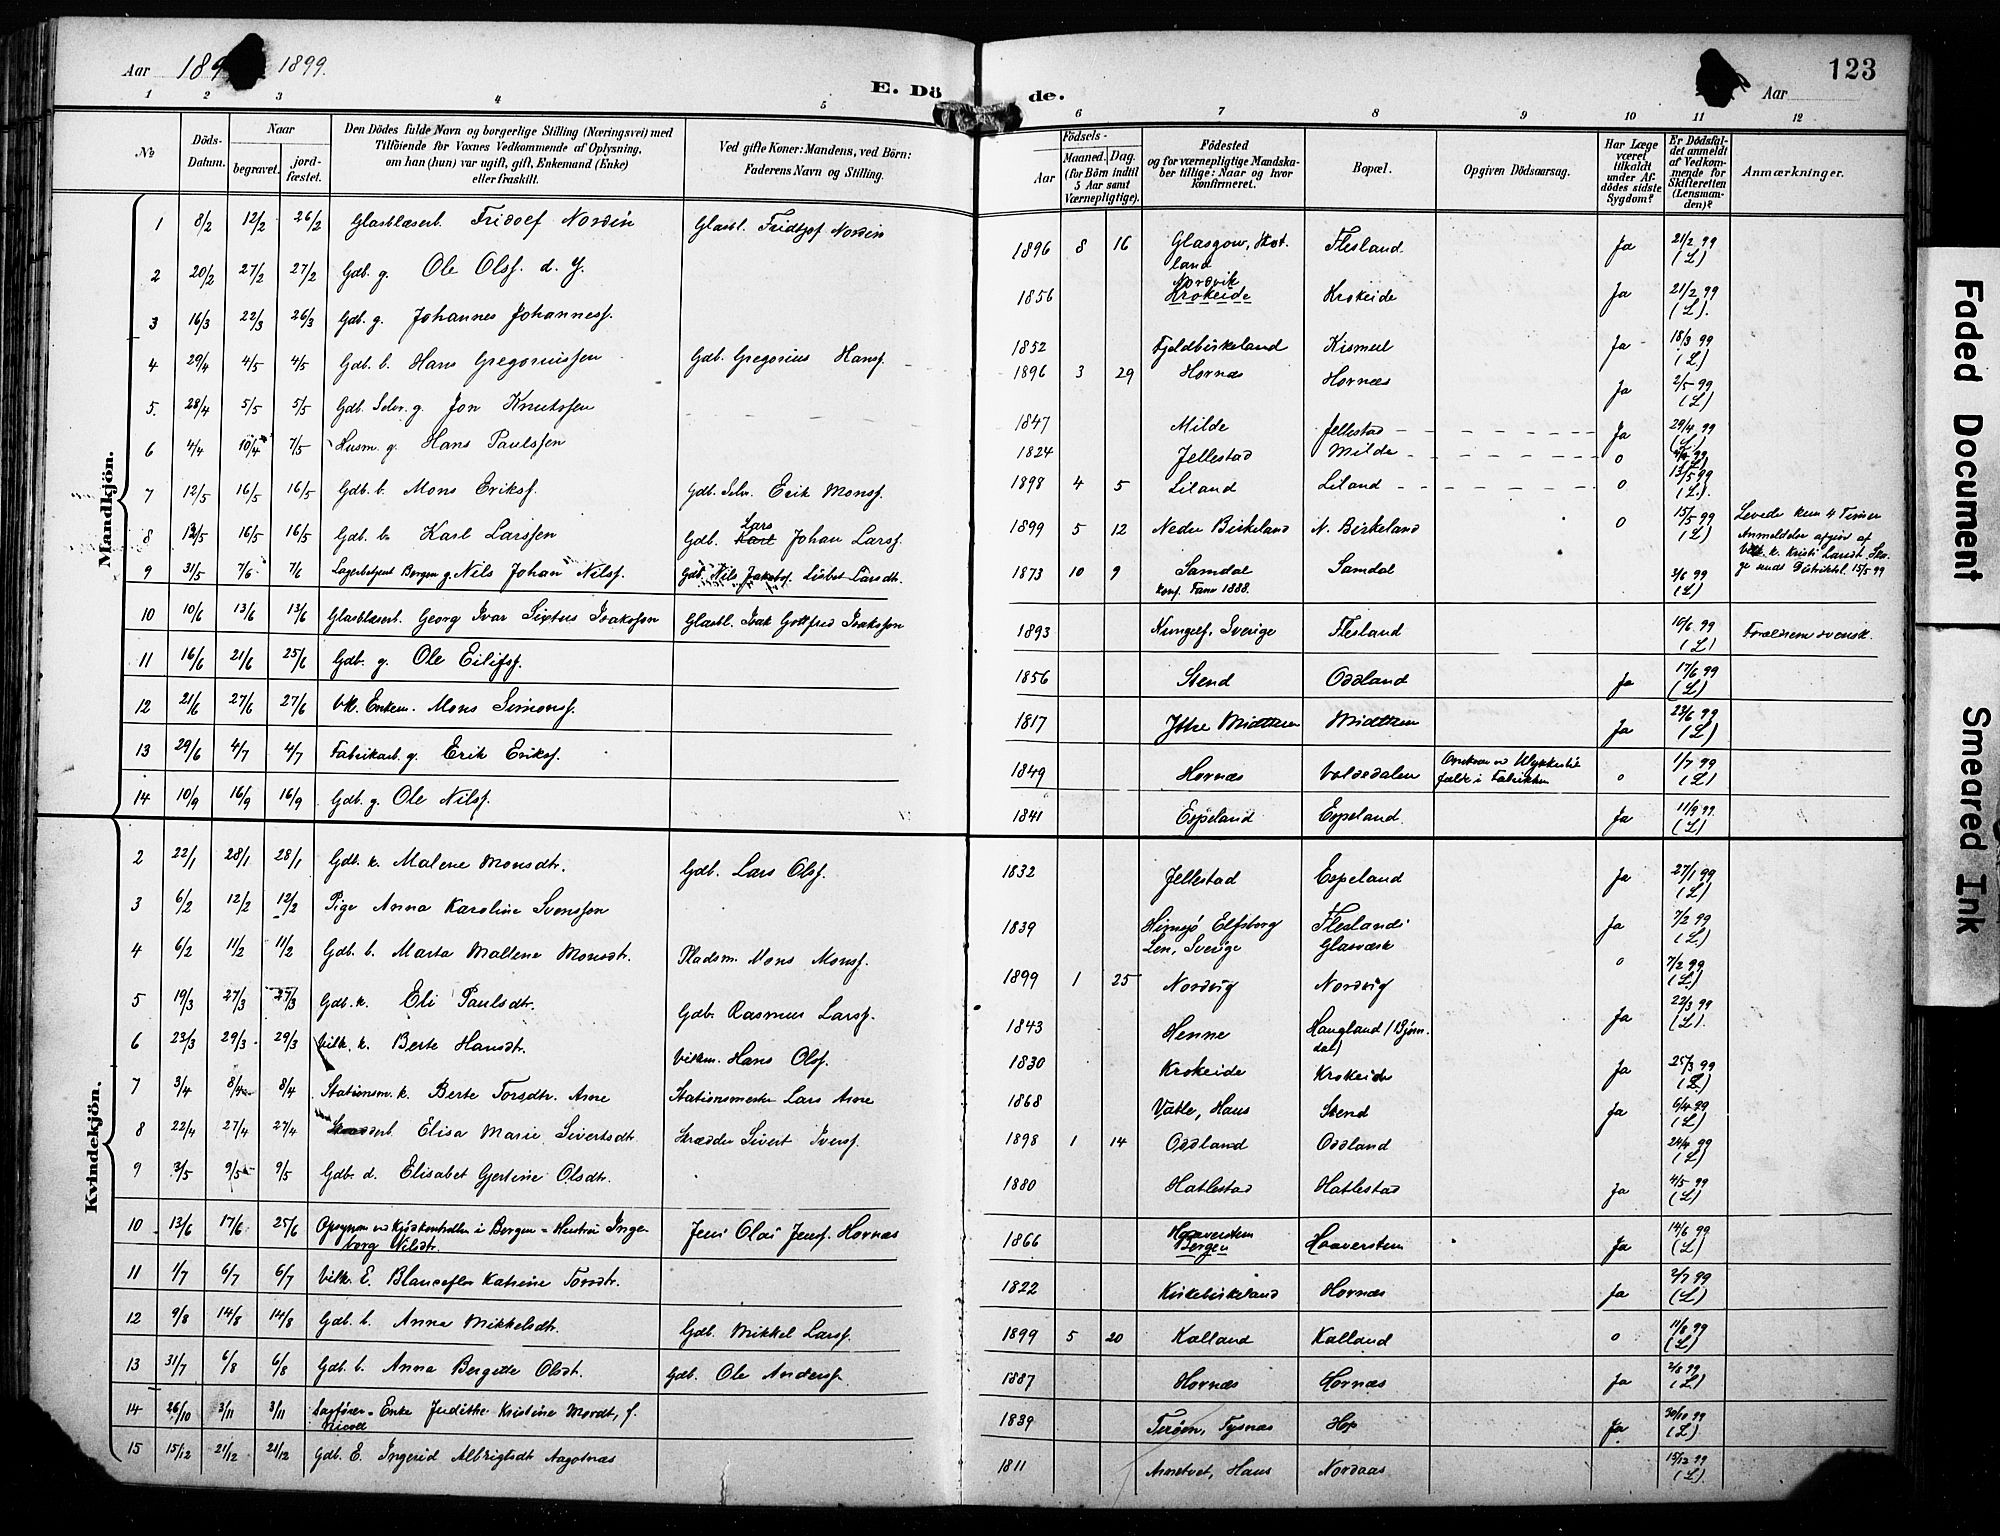 Aar 189 1899.
E. Dö de.
Aar
123
1 2 3 4 5 6 7 8 9 10 11 12
No
Döds-Datum.
Naar
begravet.
jord-fæstet.
Den Dödes fulde Navn og borgerlige Stilling (Næringsvei) med
Tilföiende for Voxnes Vedkommende af Oplysning,
om han (hun) var ugift, gift, Enkemand (Enke)
eller fraskilt.
Ved gifte Koner: Mandens, ved Börn:
Faderens Navn og Stilling.
Födsels-
Aar
Maaned. Dag.
(for Börn indtil
5 Aar samt
Værnepligtige).
Födested
og for værnepligtige Mandska-
ber tillige: Naar og hvor
konfirmeret.
Bopæl.
Opgiven Dödsaarsag.
Har Læge
været
tilkaldt
under Af-
dödes sidste
Sygdom?
Er Dödsfal-
det anmeldt
af Vedkom-
mende for
Skifteretten
(Lensman-
den)?
Anmærkninger.
Mandkjön.
1 8/2 12/2 26/2 Glasblæserb. Fridolf Nordin Glasbl. Fridtjof Nordin 1896 8 16 Glasgow, Skotland Flesland. Ja 21/2 99 (L)
2 20/2 27/2 27/2 Gdb. g. Ole Olsf. d. y. 1856 Nordvik Krokeide Krokeide Ja 21/2 99 (L).
3 16/3 22/3 26/3 Gdb. g. Johannes Johannesf. 1852 Fjeldbirkeland Kismul Ja 18/3 99 (L)
4 29/4 4/5 4/5 Gdb. b. Hans Gregoriussen Gdb. Gregorius Hansf. 1896 3 29 Hornæs Hornæs Ja 2/5 99 (L)
5. 28/4 5/5 5/5 Gdb. Selv. g. Jon Knutssen 1847 Milde Jellestad Ja 29/4 99 (L)
6 4/4 10/4 7/5 Husm. g. Hans Paulssen 1824 Jellestad Milde o
7 12/5 16/5 16/5 Gdb. b. Mons Eriksf. Gdb. Selv. Erik Monsf. 1898 4 5 Liland Liland o 13/5 99 (L).
8 13/5 16/5 16/5 Gdb. b. Karl Larssen Gdb. Karl Lars Johan Larsf. 1899 5 12 Nedre Birkeland N. Birkeland o 15/5 99 (L) Levede kun 4 Timer Anmeldelse afgiv. af
9 31/5 7/6 7/6 Lagerbetjent Bergen g. Nils Johan Nilsf. Gdb. Nils Jakobsf. Lisbet Larsdt. 1873 10 9 Samdal konf. Fane 1888. Samdal 3/6 99 (L)
10 10/6 13/6 13/6 Glasblæserb. Georg Ivar Sixtus Isaksson Glasbl. Isak Gottfred Isaksson 1893 Sverige Flesland 10/6 99 (L) Forældrene svensk.
11 16/6 21/6 25/6 Gdb. g. Ole Eilifsf. 1856 Stend Oddland Ja 17/6 99 (L)
12 21/6 27/6 27/6 Vk. Enkem. Mons Simonsf. 1817 Ytre Midttun Midttun Ja 23/6 99 (L)
13 29/6 4/7 4/7 Fabrikarb. g. Erik Eriksf. 1849 Hornæs Valdedalen Omkom ved Ulykkestilfælde i Fabrikken o 1/7 99 (L)
14 10/9 16/9 16/9 Gdb. g. Ole Nilsf. 1841 Espeland Espeland. Ja 11/9 99. (L)
Kvindekjön.
2 22/1 28/1 28/1 Gdb. k. Malene Monsdtr. Gdb. Lars Olsf. 1832 Jellestad Espeland Ja 27/1 99 (L)
3 6/2 12/2 12/2 Pige Anna Karoline Svensson 1839 Elfsborg Len, Sverige Fleslands Glasværk Ja 7/2 99 (L.)
4 6/2 11/2 11/2 Gdb. b. Marta Mallene Monsdtr. Pladsm. Mons Monsf. 1899 1 25 Nordvig Nordvig o 7/2 99 (L)
5 19/3 27/3 27/3 Gdb. k. Eli Paulsdtr. Gdb. Rasmus Larsf. 1843 Henne Haugland (Bjørndal) Ja 22/3 99 (L).
6 23/3 29/3 29/3 Vilk. k. Berte Hansdtr. Vilkm. Hans Olsf. 1830 Krokeide Krokeide Ja 25/3 99 (L)
7 3/4 8/4 8/4 Stationsm. k. Berte Torsdtr. Arne Stationsmester Lars Arne 1868 Vatle, Haus Stend Ja 6/4 99 (L)
8 22/4 27/4 27/4 Skrædderb. Elisa Marie Sivertsdtr. Skrædder Sivert Iversf. 1898 1 14 Oddland Oddland 24/4 99 (L)
9 3/5 9/5 9/5 Gdb. d. Elisabet Gjertine Olsdtr. 1880 Hatlestad Hatlestad Ja 4/5 99 (L)
10 13/6 17/6 25/6 Opsynsm. ved Kjødkontrollen i Bergen - Hustru Ingeborg Nilsdtr. Jens Olai Jensf. Hornæs 1866 Haaverstein Bergen Haaverstein Ja 14/6 99 (L)
11 1/7 6/7 6/7 Vilk. E. Blanceflor Katrine Torsdtr. 1822 Kirkebirkeland Hornæs Ja 2/7 99 (L)
12 9/8 14/8 14/8 Gdb. b. Anna Mikkelsdtr. Gdb. Mikkel Larsf. 1899 5 20 Kalland Kalland o 11/8 99 (L)
13 31/7 6/8 6/8 Gdb. b. Anna Bergitte Olsdt. Gdb. Ole Andersf. 1887 Hornæs Hornæs Ja 2/8 99 (L)
14 26/10 3/11 3/11 Sagfører - Enke Judithe Kristine Mordt, f. 1839 Terøen, Tysnæs Hop Ja 30/10 99 (L)
15 15/12 21/12 21/12 Gdb. E. Ingerid Albrigtsdt. Aagotnæs 1811 Arnetvet, Haus Nordaas 15/12 99 (L)
Faded Document
Smeared Ink